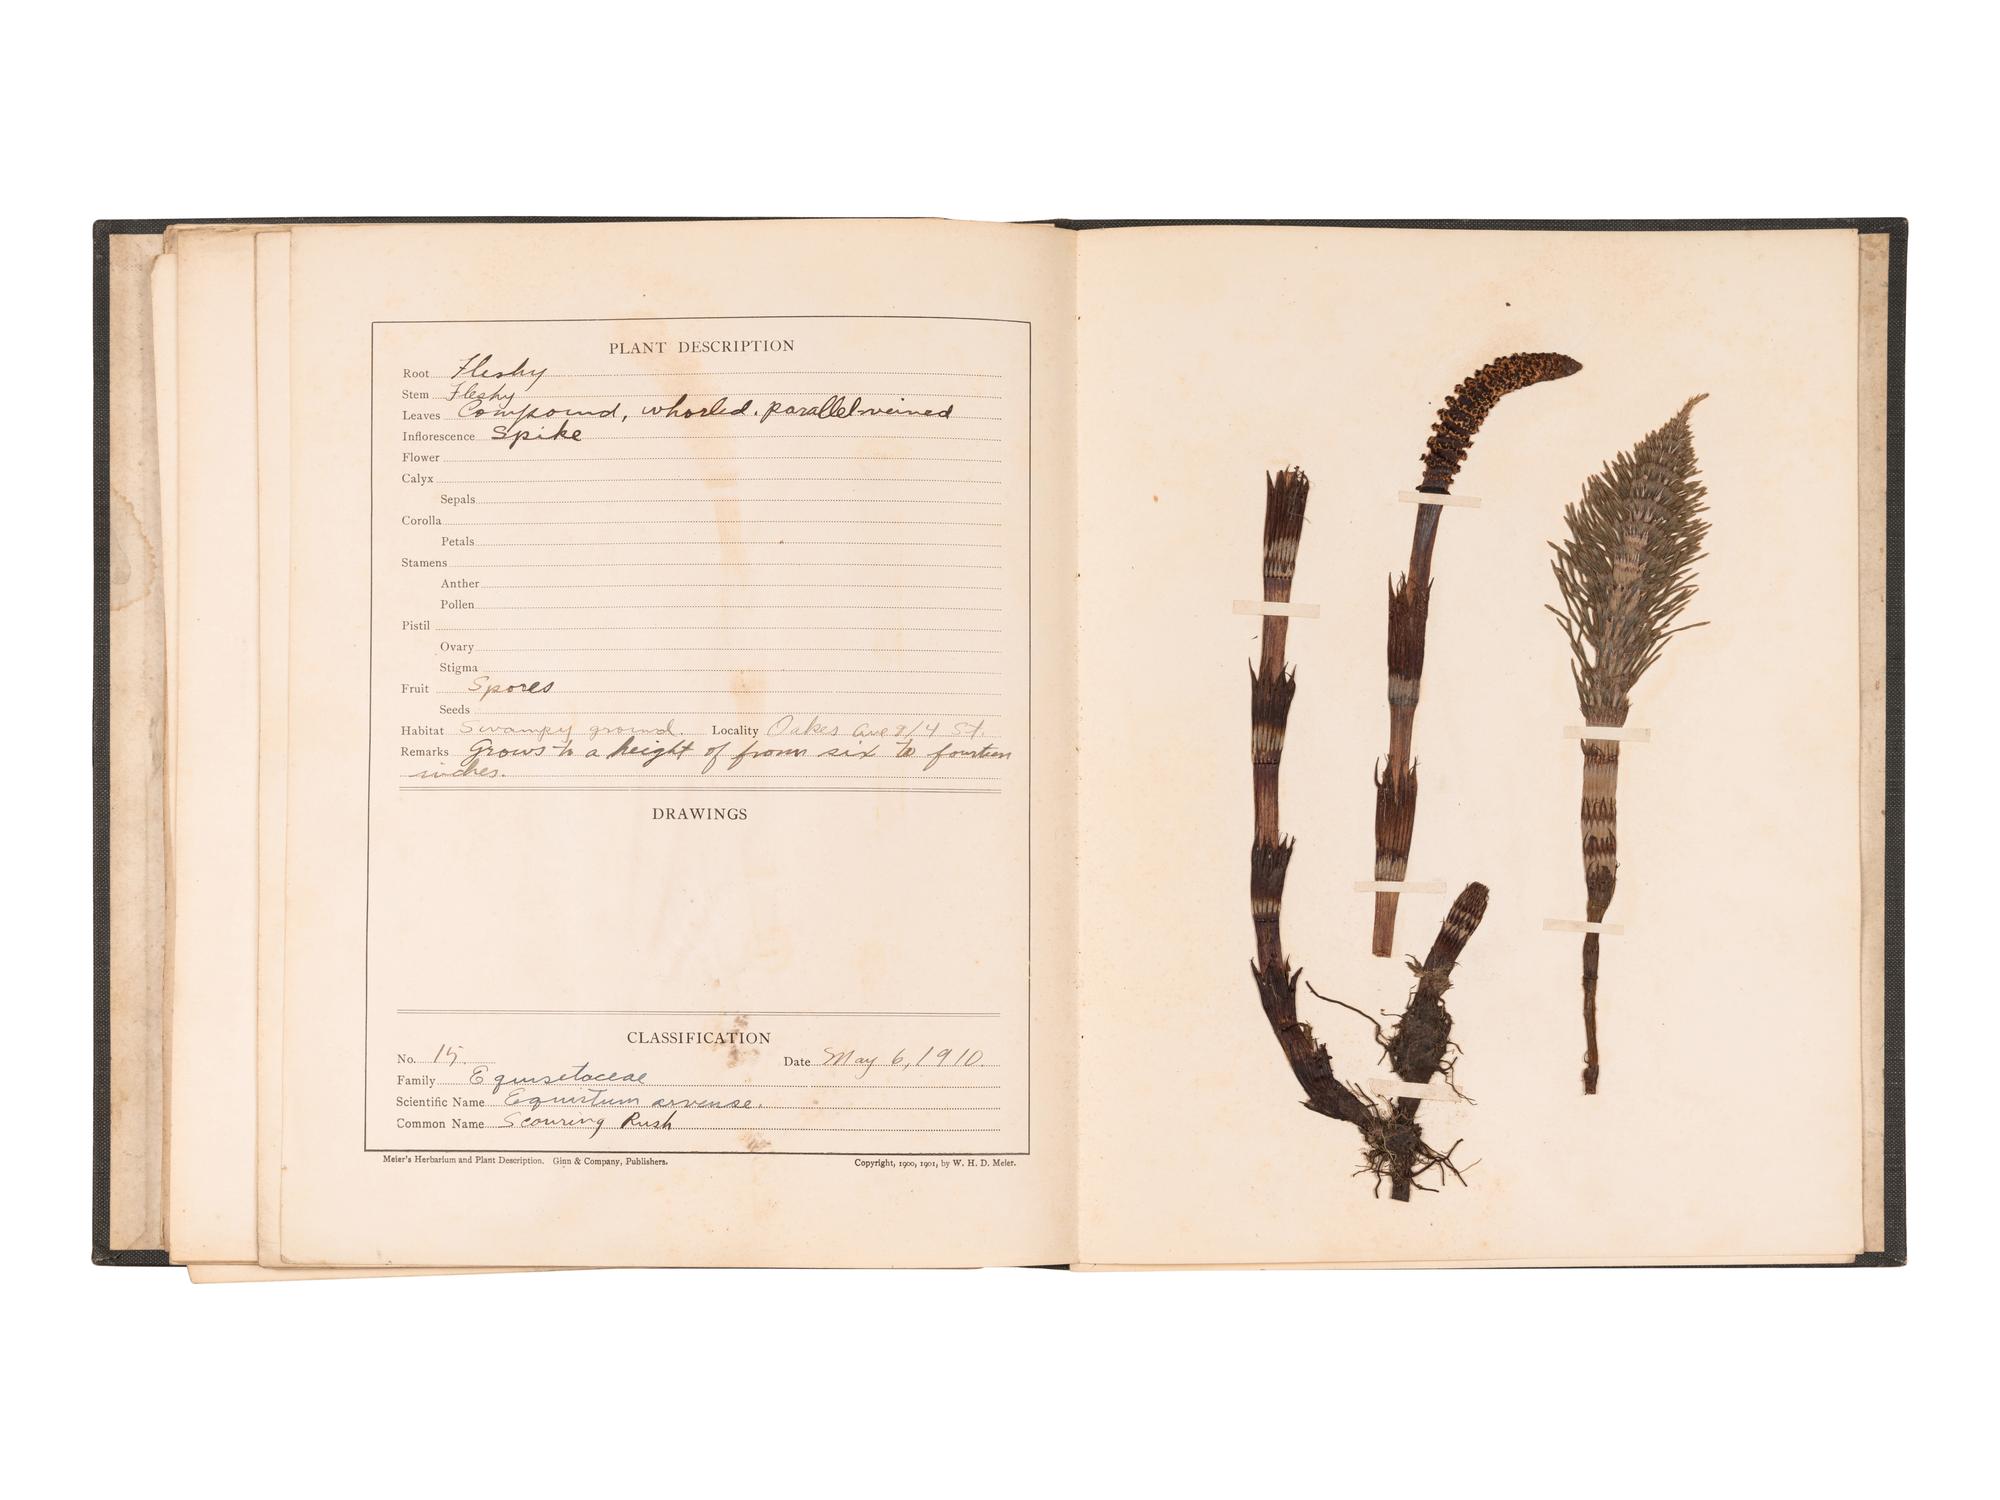 PLANT DESCRIPTION
Root Fleshy
Stem Fleshy
Leaves Compound, whorled, parallel-veined
Inflorescence Spike
Flower
Calyx
Sepals
Corolla
Petals
Stamens
Anther
Pollen
Pistil
Ovary
Stigma
Fruit Spores
Seeds
Habitat Swampy ground. Locality Oakes Ave St.
Remarks Grows to a height of from six to fourteen
inches.
DRAWINGS
CLASSIFICATION
No. 15. Date May 6, 1910.
Family Equisetaceae
Scientific Name Equisetum arvense.
Common Name Scouring Rush
Meier's Herbarium and Plant Description. Ginn & Company, Publishers. Copyright, 1900, 1901, by W. H. D. Meier.